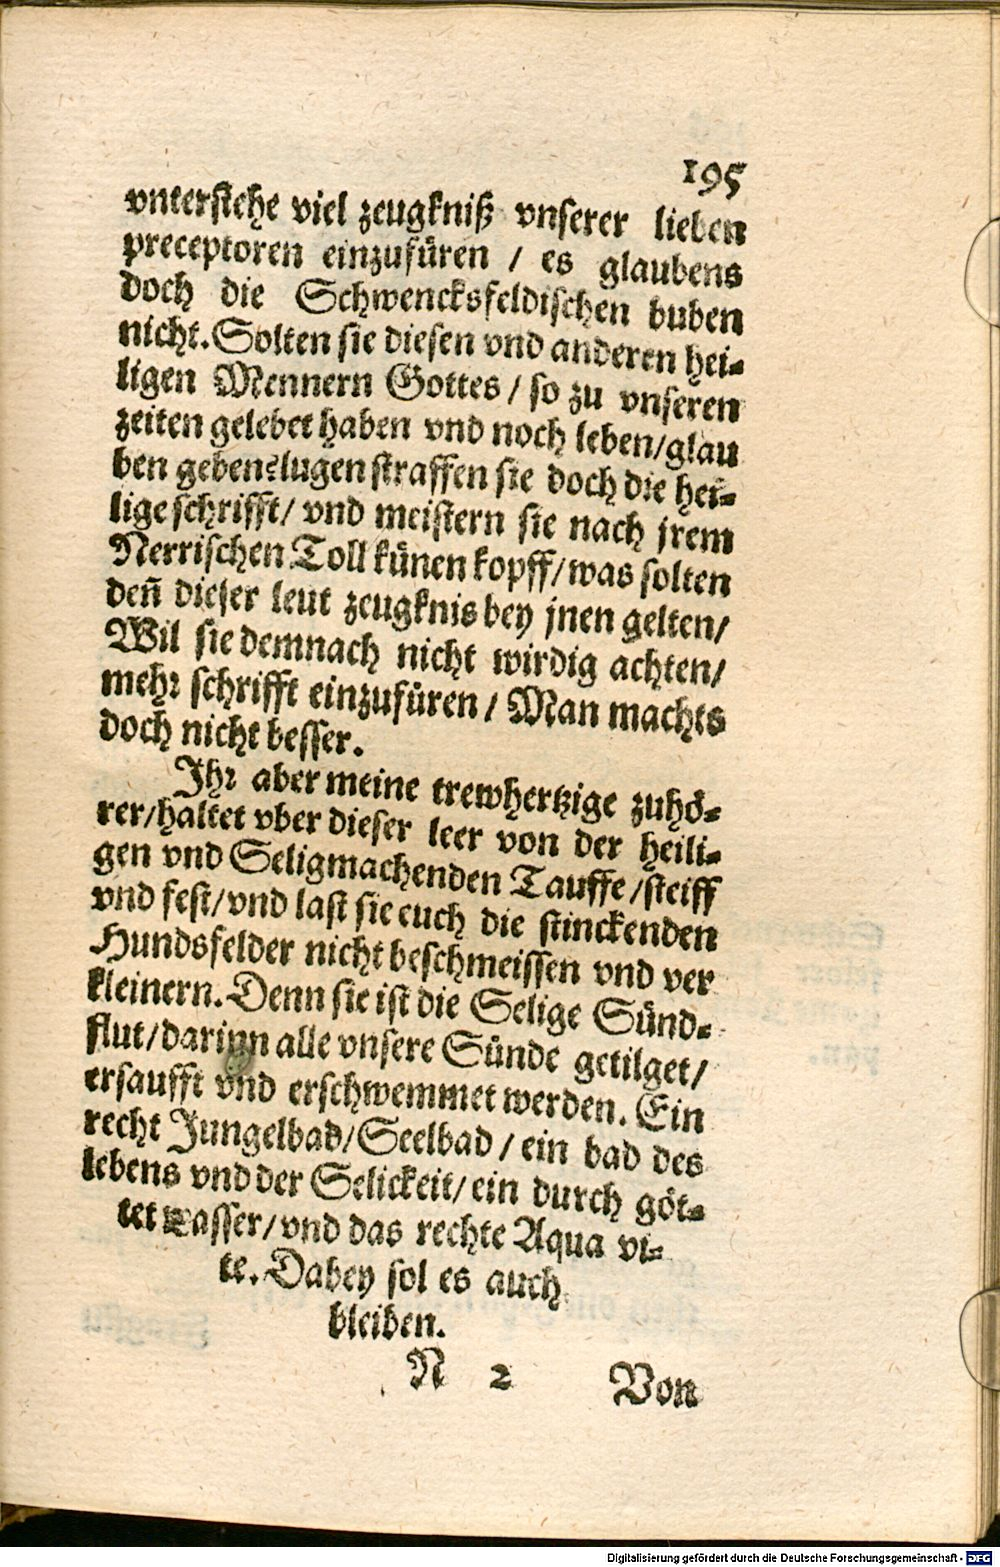 195
vnterstehe viel zeugkniß vnserer lieben
preceptoren einzufüren / es glaubens
doch die Schwencksfeldischen buben
nicht. Solten sie diesen vnd anderen hei-
ligen Mennern Gottes / so zu vnseren
zeiten gelebet haben vnd noch leben/glau
ben geben? lugen straffen sie doch die hei-
lige schrifft/ vnd meistern sie nach jrem
Nerrischen Toll künen kopff/was solten
deñ dieser leut zeugknis bey jnen gelten/
Wil sie demnach nicht wirdig achten/
mehr schrifft einzufüren / Man machts
doch nicht besser.
Ihr aber meine trewhertzige zuhö-
rer/haltet vber dieser leer von der heili-
gen vnd Seligmachenden Tauffe /steiff
vnd fest/vnd last sie euch die stinckenden
Hundsfelder nicht beschmeissen vnd ver
kleinern. Denn sie ist die Selige Sünd-
flut/darinn alle vnsere Sünde getilget/
ersaufft vnd erschwemmet werden. Ein
recht Jungelbad/Seelbad / ein bad des
lebens vnd der Selickeit/ ein durch göt-
tet wasser/vnd das rechte Aqua vi-
te. Dabey sol es auch
bleiben.
N 2 Von
Digitalisierung gefördert durch die Deutsche Forschungsgemeinschaft - DFG